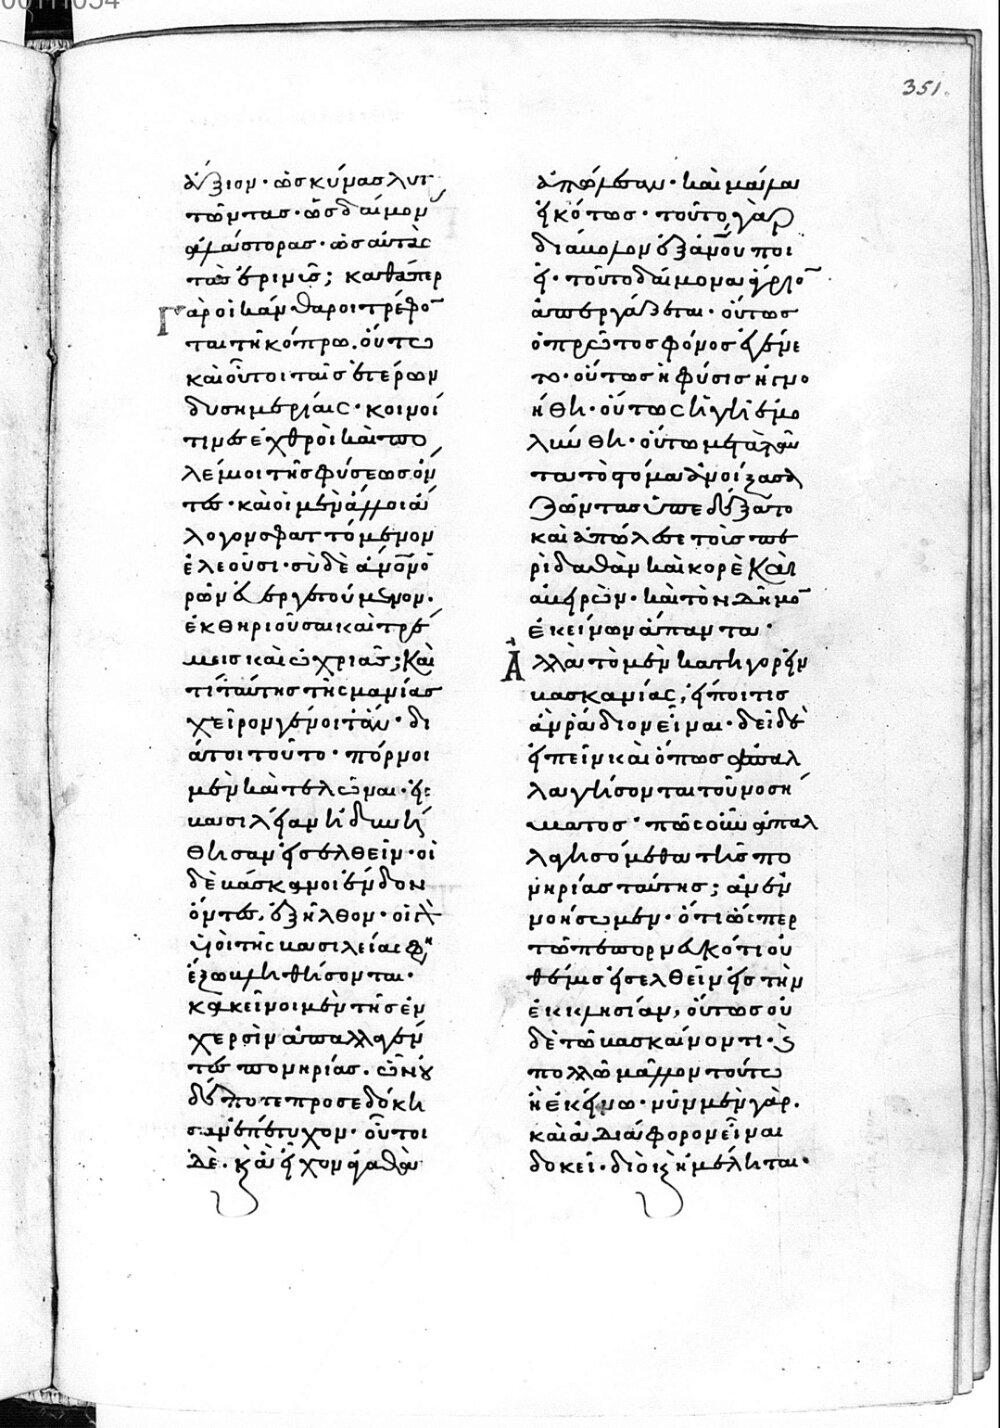 351.
ἄξιον· ὡς κύνας λυτ
τῶντας· ὡς δαίμον
ἀλάστορας· ὡς αὐτὰς
τὰς ἐριννῦς; καθάπερ
γὰρ οἱ κάνθαροι τρέφον
ται τῇ κόπρῳ. οὕτω
καὶ οὗτοι ταῖς ἑτέρων
δυσημερίαις· κοινοί
τινες ἐχθροὶ καὶ πο
λέμιοι τῆς φύσεως ὄν
τες· καὶ οἱ μὲν ἄλλοι ἄ
λογον σφαττόμενον
ἐλεοῦσι· σὺ δὲ ἄνον ὁ
ρῶν εὐεργετούμενον.
ἐκθηριοῦσαι καὶ τρέ
μεις καὶ ὠχριᾶς; καὶ
τί ταύτης τῆς μανίας
χεῖρον γένοιτ᾽ ἄν· δι
ά τοι τοῦτο· πόρνοι
μὲν καὶ τελῶναι· εἰς
βασιλείαν ἠδυνή
θησαν εἰσελθεῖν· οἱ
δὲ βάσκανοι ἔνδον
ὄντες, ἐξῆλθον· οἱ γὰρ
υἱοὶ τῆς βασιλείας φη
ἔξω βληθήσονται·
κἀκεῖνοι μὲν τῆς ἐν
χερσὶν ἀπαλλαγέν
τες πονηρίας. ὧν οὐ
δέποτε προσεδόκη
σαν ἐπέτυχον· οὗτοι
δὲ. κἃ εἶχον ἀγαθὰ
ἀπώλεσαν· καὶ μάλα
εἰκότως· τοῦτο γὰρ
διάβολον ἐξ ἀνοῦ ποι
εῖ· τοῦτο δαίμονα ἄγριον
ἀπεργάζεται· οὕτως
ὁ πρῶτος φόνος ἐγένε
το· οὕτως ἡ φύσις ἠγνο
ήθη· οὕτως ἡ γῆ ἐμο
λύνθη· οὕτω μετὰ ταῦ
τα τὸ στόμα ἀνοίξασα
ζῶντας ὑπεδέξατο
καὶ ἀπώλεσε τοὺς πε
ρὶ δαθὰν καὶ κορὲ καὶ
ἀβειρών· καὶ τὸν δῆμον
ἐκείνων ἅπαντα·
Ἀλλὰ τὸ μὲν κατηγορεῖν
βασκανίας, εἴποι τις
ἂν ῥᾴδιον εἶναι· δεῖ δὲ
εἰπεῖν καὶ ὅπως ἀπαλ
λαγήσονται τοῦ νοσή
ματος· πῶς οὖν ἀπαλ
λαγησόμεθα τῆς πο
νηρίας ταύτης; ἂν ἐν
νοήσωμεν· ὅτι ὥσπερ
τῷ πεπορνευκότι οὐ
θέμις εἰσελθεῖν εἰς τὴν
ἐκκλησίαν, οὕτως οὐ
δὲ τῷ βασκαίνοντι· καὶ
πολλῷ μᾶλλον τούτω
ἢ ἐκείνω· νῦν μὲν γὰρ.
καὶ ἀδιάφορον εἶναι
δοκεῖ· διὸ καὶ ἠμέληται·